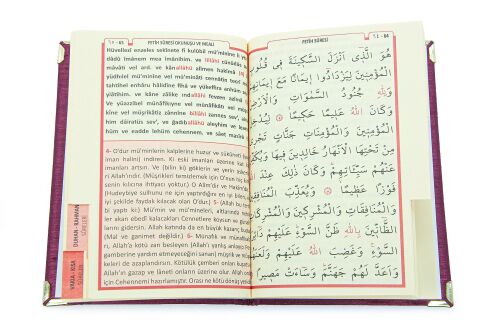 ٦٥ - 65 FETİH SÛRESİ OKUNUŞU VE MEÂLİ
Hüvellezî enzeles sekînete fî kulûbil mü'minîne li
dâdû îmânem mea îmânihim. ve lillâhi
mâvâti vel ard. ve kânallâhü alîmen hakîmâ
yüdhilel mü'minîne vel mü'minâti cennâtin tecrî
tahtihel enhâru hâlidîne fîhâ ve yükeffira anhüm
yiâtihim. ve kâne zâlike indallâhi fevzen azîmâ
Ve yüazzibel münâfikıyne vel münâfikâti vel
kîne vel müşrikâtiz zânnîne billâhi zannes sev', aley
him dâiratüs sev', ve ğadıballâhü aleyhim ve
hüm ve eadde lehüm cehennem, ve sâet
4- O'dur mü'minlerin kalplerine huzur ve sükûneti
iman halini) indiren. Ki eski imanları üzerine kat
imanları artsın. Ve (bilin ki) göklerin ve yerin
ri Allah'ındır. (Müşrikleri temizlemek için O'nun hiç
senin kılıcına ihtiyacı yoktur.) O Alîm'dir ve Hakîm'dir.
(Hudeybiye sulhunu ne için yaptırdığını en iyi bilen,
iyi şekilde faydalı kılacak olan O'dur.) 5- (Allah bu
bi yaptı ki:) Mü'min ve mü'mineleri, altlarında
ler akan ebedî kalacakları Cennetlere koysun ve
larını gidersin. Allah katında en da en büyük kazanç
(Mal ve ganimet değildir.) 6- Münafık ve
rı, Allah'a kötü zan besleyen (Allah'ı yanlış anlayıp
gamberine yardım etmeyeceğini sanan) müşrik ve
keleri de azaplandırsın. Kötülük çemberi onları
Allah'ın gazap ve lâneti onların üzerine olur. Allah
için Cehennemi hazırlamıştır. Orası ne kötü dönüş
DUHAN - RAHMAN
SÛRELERİ
VAKIA - KISA
SÛRELER
FETİH SÛRESİ ٦٤ - 64
هُوَ الَّذِي أَنْزَلَ السَّكِينَةَ فِي قُلُوبِ
الْمُؤْمِنِينَ لِيَزْدَادُوا إِيمَانًا مَعَ إِيمَانِهِمْ
وَلِلَّهِ جُنُودُ السَّمٰوَاتِ وَالْأَرْضِ
وَكَانَ اللّٰهُ عَلِيمًا حَكِيمًا ۝ لِيُدْخِلَ
الْمُؤْمِنِينَ وَالْمُؤْمِنَاتِ جَنَّاتٍ تَجْرِي
مِنْ تَحْتِهَا الْأَنْهَارُ خَالِدِينَ فِيهَا وَيُكَفِّرَ
عَنْهُمْ سَيِّئَاتِهِمْ وَكَانَ ذٰلِكَ عِنْدَ اللّٰهِ
فَوْزًا عَظِيمًا ۝ وَيُعَذِّبَ الْمُنَافِقِينَ
وَالْمُنَافِقَاتِ وَالْمُشْرِكِينَ وَالْمُشْرِكَاتِ
الظَّانِّينَ بِاللّٰهِ ظَنَّ السَّوْءِ عَلَيْهِمْ دَائِرَةُ
السَّوْءِ وَغَضِبَ اللّٰهُ عَلَيْهِمْ وَلَعَنَهُمْ
وَأَعَدَّ لَهُمْ جَهَنَّمَ وَسَاءَتْ مَصِيرًا